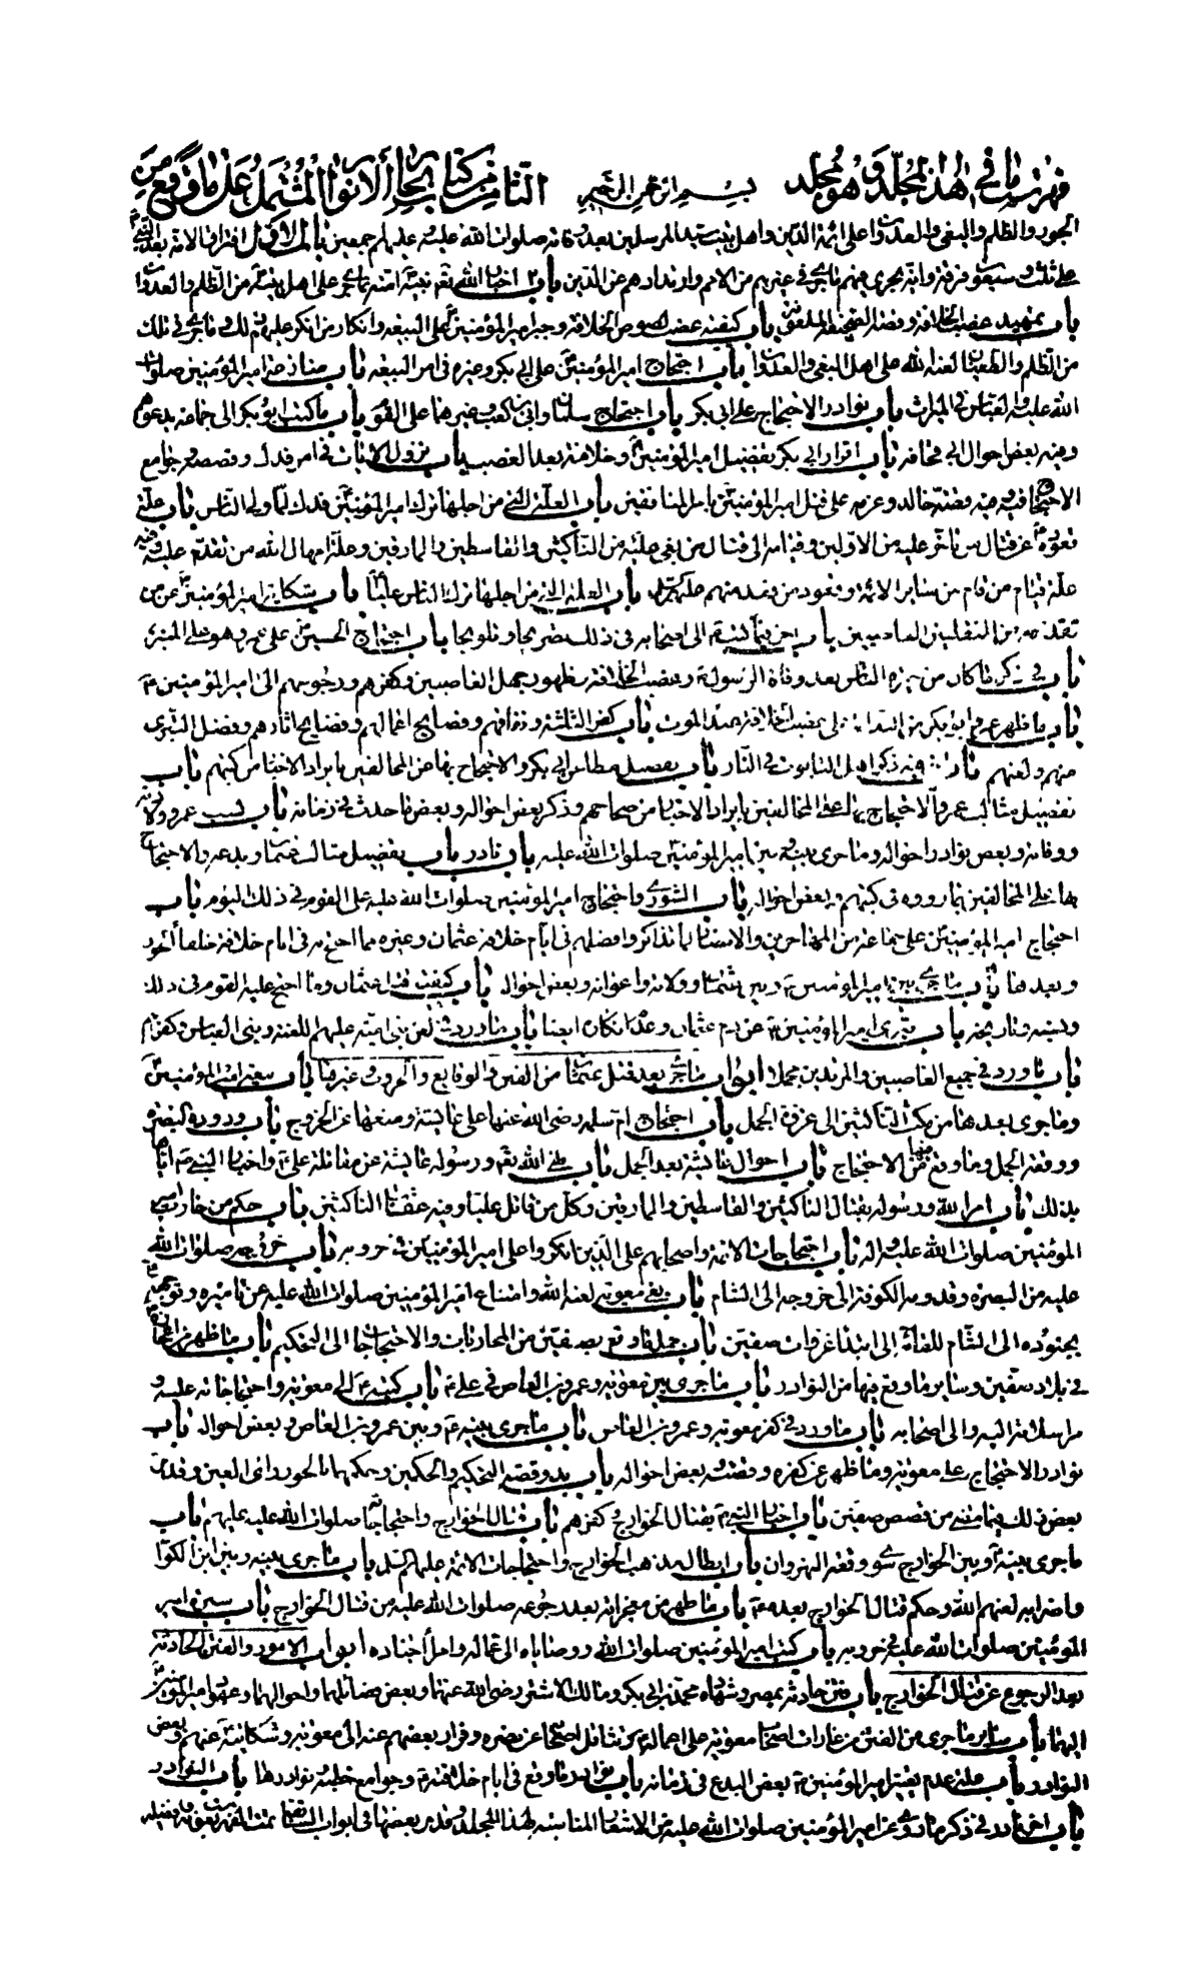 فهرست ما في هذا المجلد وهو مجلد بسم الله الرحمن الرحيم الثامن من كتاب بحار الأنوار المشتمل على ما وقع من
الجور والظلم والبغي والعدوان على ائمة الدين واهل بيت سيد المرسلين بعد وفاته صلوات الله عليه وعليهم اجمعين باب الاول افتراق الامة بعد النبي
على ثلث وسبعين فرقة وانه يجري فيهم ما جرى في غيرهم من الامم وارتدادهم عن الدين باب اخبار الله تعالى نبيه امته بما جرى على اهل بيته من الظلم والعدوان
باب تمهيد غصب الخلافة وقصة الصحيفة الملعونة باب كيفية غصب لصوص الخلافة وجبر امير المؤمنين على البيعة وانكار من انكر عليهم ذلك وما جرى في ذلك
من الظلم والطغيان لعنة الله على اهل البغي والعدوان باب احتجاج امير المؤمنين على ابي بكر وغيره في امر البيعة باب منازعة امير المؤمنين صلوات
الله عليه والعباس في الميراث باب نوادر الاحتجاج على ابي بكر باب احتجاج سلمان وابي بن كعب وغيرهما على القوم باب ما كتب ابو بكر الى جماعة يدعوهم
وفيه بعض احوال ابي قحافة باب اقرار ابي بكر بفضل امير المؤمنين وخلافته بعد الغصب باب نزول الايات في امر فدك وقصصه وجوامع
الاحتجاج فيه وفيه قصة خالد وعزمه على قتل امير المؤمنين بامر المنافقين باب العلة التي من اجلها ترك امير المؤمنين فدك لما ولي الناس باب علة
قعوده عن قتال من تأخر عليه من الاولين وقيامه الى قتال من بغي عليه من الناكثين والقاسطين والمارقين وعلة امهال الله من تقدم عليه وفيه
علة قيام من قام من سائر الائمة وقعود من قعد منهم عليهم السلام باب العلة التي من اجلها ترك الناس عليا باب شكاية امير المؤمنين عن من
تقدمه من المتغلبين الغاصبين باب اخر فيما كتب الى اصحابه في ذلك تصريحا وتلويحا باب احتجاج الحسين على عمر وهو على المنبر
باب في ذكر ما كان من حيرة الناس بعد وفاة الرسول وغصب الخلافة وظهور جهل الغاصبين وكفرهم ورجوعهم الى امير المؤمنين
باب ما اظهر عمر وابو بكر من الندامة على غصب الخلافة عند الموت باب كفر الثلثة ونفاقهم وفضايح اعمالهم وقبايح اثارهم وفضل التبري
منهم ولعنهم باب اخر فيه ذكر اهل التابوت في النار باب تفصيل مطاعن ابي بكر والاحتجاج بها على المخالفين بايراد الاخبار من كتبهم باب
تفصيل مثالب عمر والاحتجاج بها على المخالفين بايراد الاخبار من صحاحهم وذكر بعض احواله وبعض ما حدث في زمانه باب نسب عمر وولادته
ووفاته وبعض نوادر احواله وما جرى بينه وبين امير المؤمنين صلوات الله عليه باب نادر باب تفصيل مثالب عثمان وبدعه والاحتجاج
بها على المخالفين بما رووه في كتبهم وبعض احواله باب الشورى واحتجاج امير المؤمنين صلوات الله عليه على القوم في ذلك اليوم باب
احتجاج امير المؤمنين على جماعة من المهاجرين والانصار لما تذاكروا فضلهم في ايام خلافة عثمان وغيره مما احتج به في ايام خلافة خلفاء الجور
وبعدها باب ما جرى بين امير المؤمنين وبين عثمان وولاته واعوانه وبعض احواله باب كيفية قتل عثمان وما احتج عليه القوم في ذلك
ونسبه وتاريخه باب تبري امير المؤمنين عن دم عثمان وعدم انكاره ايضا باب ما ورد في لعن بني امية عليهم اللعنة وبني العباس وكفرهم
باب ما ورد في جميع الغاصبين والمرتدين مجملا ابواب ما جرى بعد قتل عثمان من الفتن والوقايع والحروب وغيرها باب بيعة امير المؤمنين
وما جرى بعدها من نكث الناكثين الى غزوة الجمل باب احتجاج ام سلمة رضي الله عنها على عايشة ومنعها عن الخروج باب وروده البصرة
ووقعة الجمل وما وقع فيها من الاحتجاج باب احوال عايشة بعد الجمل باب نهي الله تعالى ورسوله عايشة عن مقاتلة علي واخبار النبي اياها
بذلك باب امر الله ورسوله بقتال الناكثين والقاسطين والمارقين وكل من قاتل عليا وفيه عقاب الناكثين باب حكم من حارب امير
المؤمنين صلوات الله عليه واله باب احتجاجات الائمة واصحابهم على الذين انكروا على امير المؤمنين حروبه باب خروجه صلوات الله
عليه من البصرة وقدومه الكوفة الى خروجه الى الشام باب بغي معوية لعنه الله وامتناع امير المؤمنين صلوات الله عليه عن تأميره وتوجهه
بجنوده الى الشام للقائه الى ابتداء غزوات صفين باب جمل ما وقع بصفين من المحاربات والاحتجاجات الى التحكيم باب ما ظهر من اعجازه
في بلاد صفين وساير ما وقع فيها من النوادر باب ما جرى بين معوية وعمرو بن العاص في علي باب كتبه الى معوية واحتجاجاته عليه و
مراسلاته اليه والى اصحابه باب ما ورد في كفر معوية وعمرو بن العاص باب ما جرى بينه وبين عمرو بن العاص وبعض احواله باب
نوادر الاحتجاج على معوية وما ظهر عن كفره وقصته بعض احواله باب بدو قصة التحكيم والحكمين وحكمهما بالجور رأي العين وقد مر
بعض ذلك فيما مضى من قصص صفين باب اخبار النبي بقتال الخوارج وكفرهم باب قتال الخوارج واحتجاجاته صلوات الله عليه عليهم باب
ما جرى بينه وبين الخوارج سوى وقعة النهروان باب ابطال مذهب الخوارج واحتجاجات الائمة عليهم السلام باب ما جرى بينه وبين ابن الكوا
واضرابه لعنهم الله وحكم قتال الخوارج بعده باب ما ظهر من معجزاته بعد رجوعه صلوات الله عليه من قتال الخوارج باب سيرة امير
المؤمنين صلوات الله عليه في حروبه باب كتب امير المؤمنين صلوات الله ووصاياه الى عماله وامراء اجناده ابواب الامور والفتن الحادثة
بعد الرجوع عن قتال الخوارج باب فتن حادثة بمصر وشهادة محمد بن ابي بكر ومالك الاشتر رضي الله عنهما وبعض فضائلهما واحوالهما وعهود امير المؤمنين
اليهما باب ساير ما جرى من الفتن من غارات اصحاب معوية على اعماله وتثاقل اصحابه عن نصره وفرار بعضهم عنه الى معوية وشكايته عنهم وبعض
النوادر باب علة عدم تغيير امير المؤمنين بعض البدع في زمانه باب نوادر ما وقع في ايام خلافته وجوامع خطبه ونوادرها باب النوادر
باب اخر نادر في ذكر ما روي عن امير المؤمنين صلوات الله عليه من الاشعار المناسبة لهذا المجلد وقد مر بعضها في ابواب السابقة تمت الفهرست